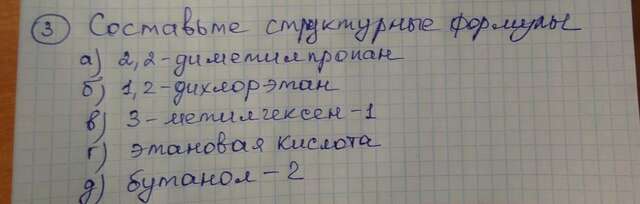 3 Составьте структурные формулы
а) 2,2-диметилпропан
б) 1,2-дихлорэтан
в) 3-метилгексен-1
г) этановая кислота
д) бутанол-2